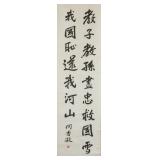 教子教孫盡忠救國雪
我國恥還我河山